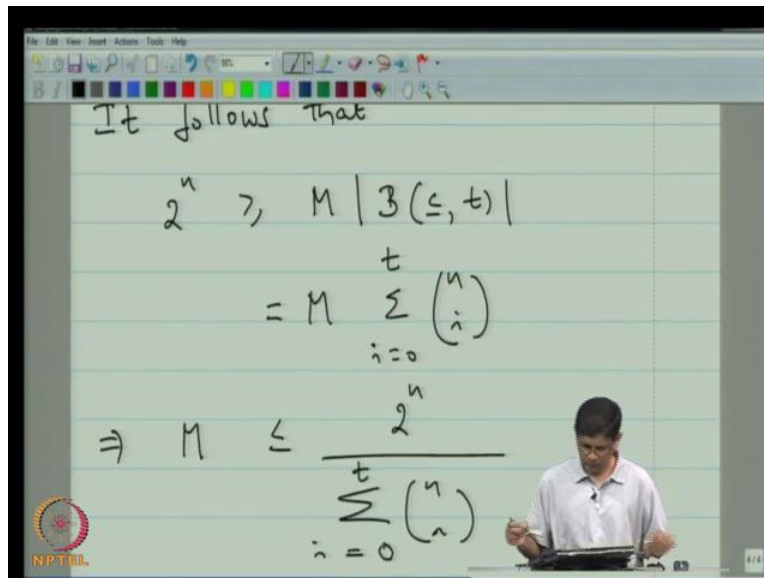 File Edit View Insert Actions Tools Help
It follows that
2^n ≥ M | B(c, t) |
= M Σ_{i=0}^{t} (n i)
⇒ M ≤ 2^n / Σ_{i=0}^{t} (n i)
NPTEL
4/4